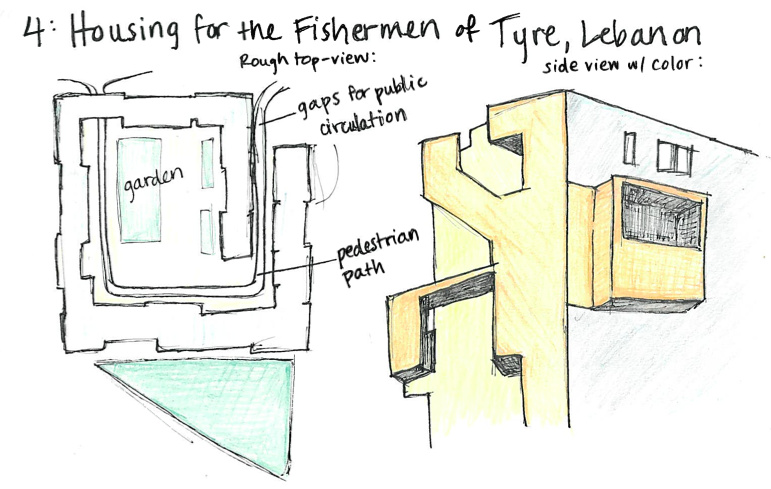 4: Housing for the Fishermen of Tyre, Lebanon
Rough top-view:
side view w/ color:
gaps for public
circulation
garden
pedestrian
path